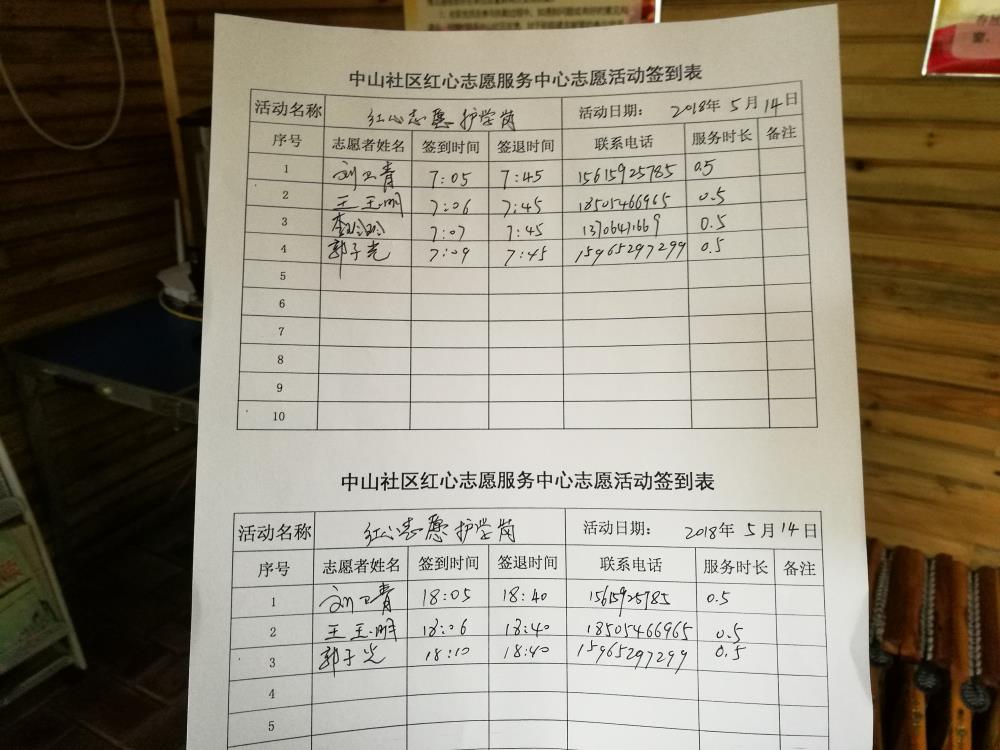 中山社区红心志愿服务中心志愿活动签到表
活动名称 红心志愿护学岗 活动日期: 2018年 5月 14日
序号 志愿者姓名 签到时间 签退时间 联系电话 服务时长 备注
1 刘卫青 7:05 7:45 15615925785 0.5
2 王玉明 7:06 7:45 18505466965 0.5
3 李玲玲 7:07 7:45 0.5
4 郭子光 7:09 7:45 15965297299 0.5
5
6
7
8
9
10
中山社区红心志愿服务中心志愿活动签到表
活动名称 红心志愿护学岗 活动日期: 2018年 5月 14日
序号 志愿者姓名 签到时间 签退时间 联系电话 服务时长 备注
1 刘卫青 18:05 18:40 15615925785 0.5
2 王玉明 18:06 18:40 18505466965 0.5
3 郭子光 18:10 18:40 15965297299 0.5
4
5